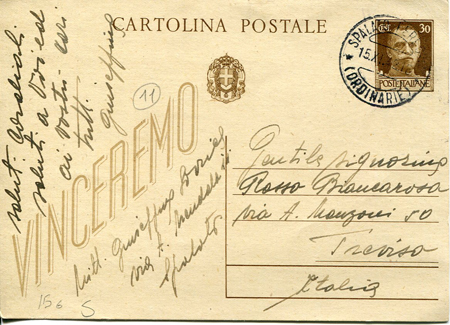 CARTOLINA POSTALE
CENT. 30
POSTE ITALIANE
SPALA
15.X
(ORDINARIE)
11
VINCEREMO
Salut. Cordiali
saluti a Voi ed
ai Vostri cari
tutti
Giuseppina
Mitt. Giuseppina
via A.
Spalato
Gentile signorina
Rosso Biancarosa
via A. Manzoni 50
Treviso
Italia
156
S